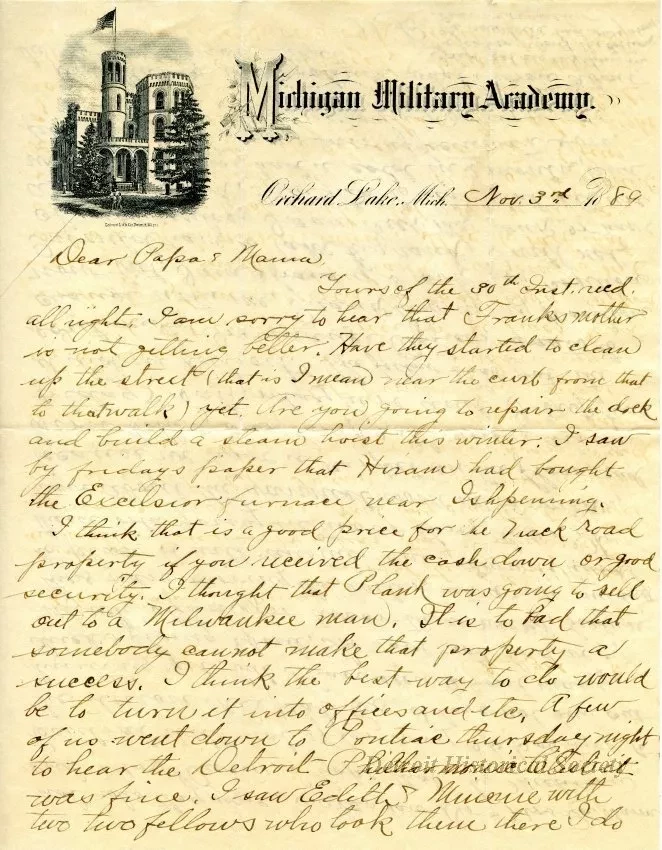 Michigan Military Academy.
Orchard Lake, Mich. Nov. 3rd 1889
Dear Papa & Mama
Yours of the 30th Inst. recd.
all right. I am sorry to hear that Franks mother
is not getting better. Have they started to clean
up the street (that is I mean near the curb from that
to that walk) yet. Are you going to repair the dock
and build a steam hoist this winter. I saw
by fridays paper that Hiram had bought
the Excelsior furnace near Ishpeming.
I think that is a good price for the road
property if you received the cash down or good
security. I thought that Plank was going to sell
out to a Milwaukee man. It is to bad that
somebody cannot make that property a
success. I think the best way to do would
be to turn it into offices and etc. A few
of us went down to Pontiac thursday night
to hear the Detroit Philharmonic Club it
was fine. I saw Edith & Minnie with
two two fellows who took them there I do
Detroit Historical Society